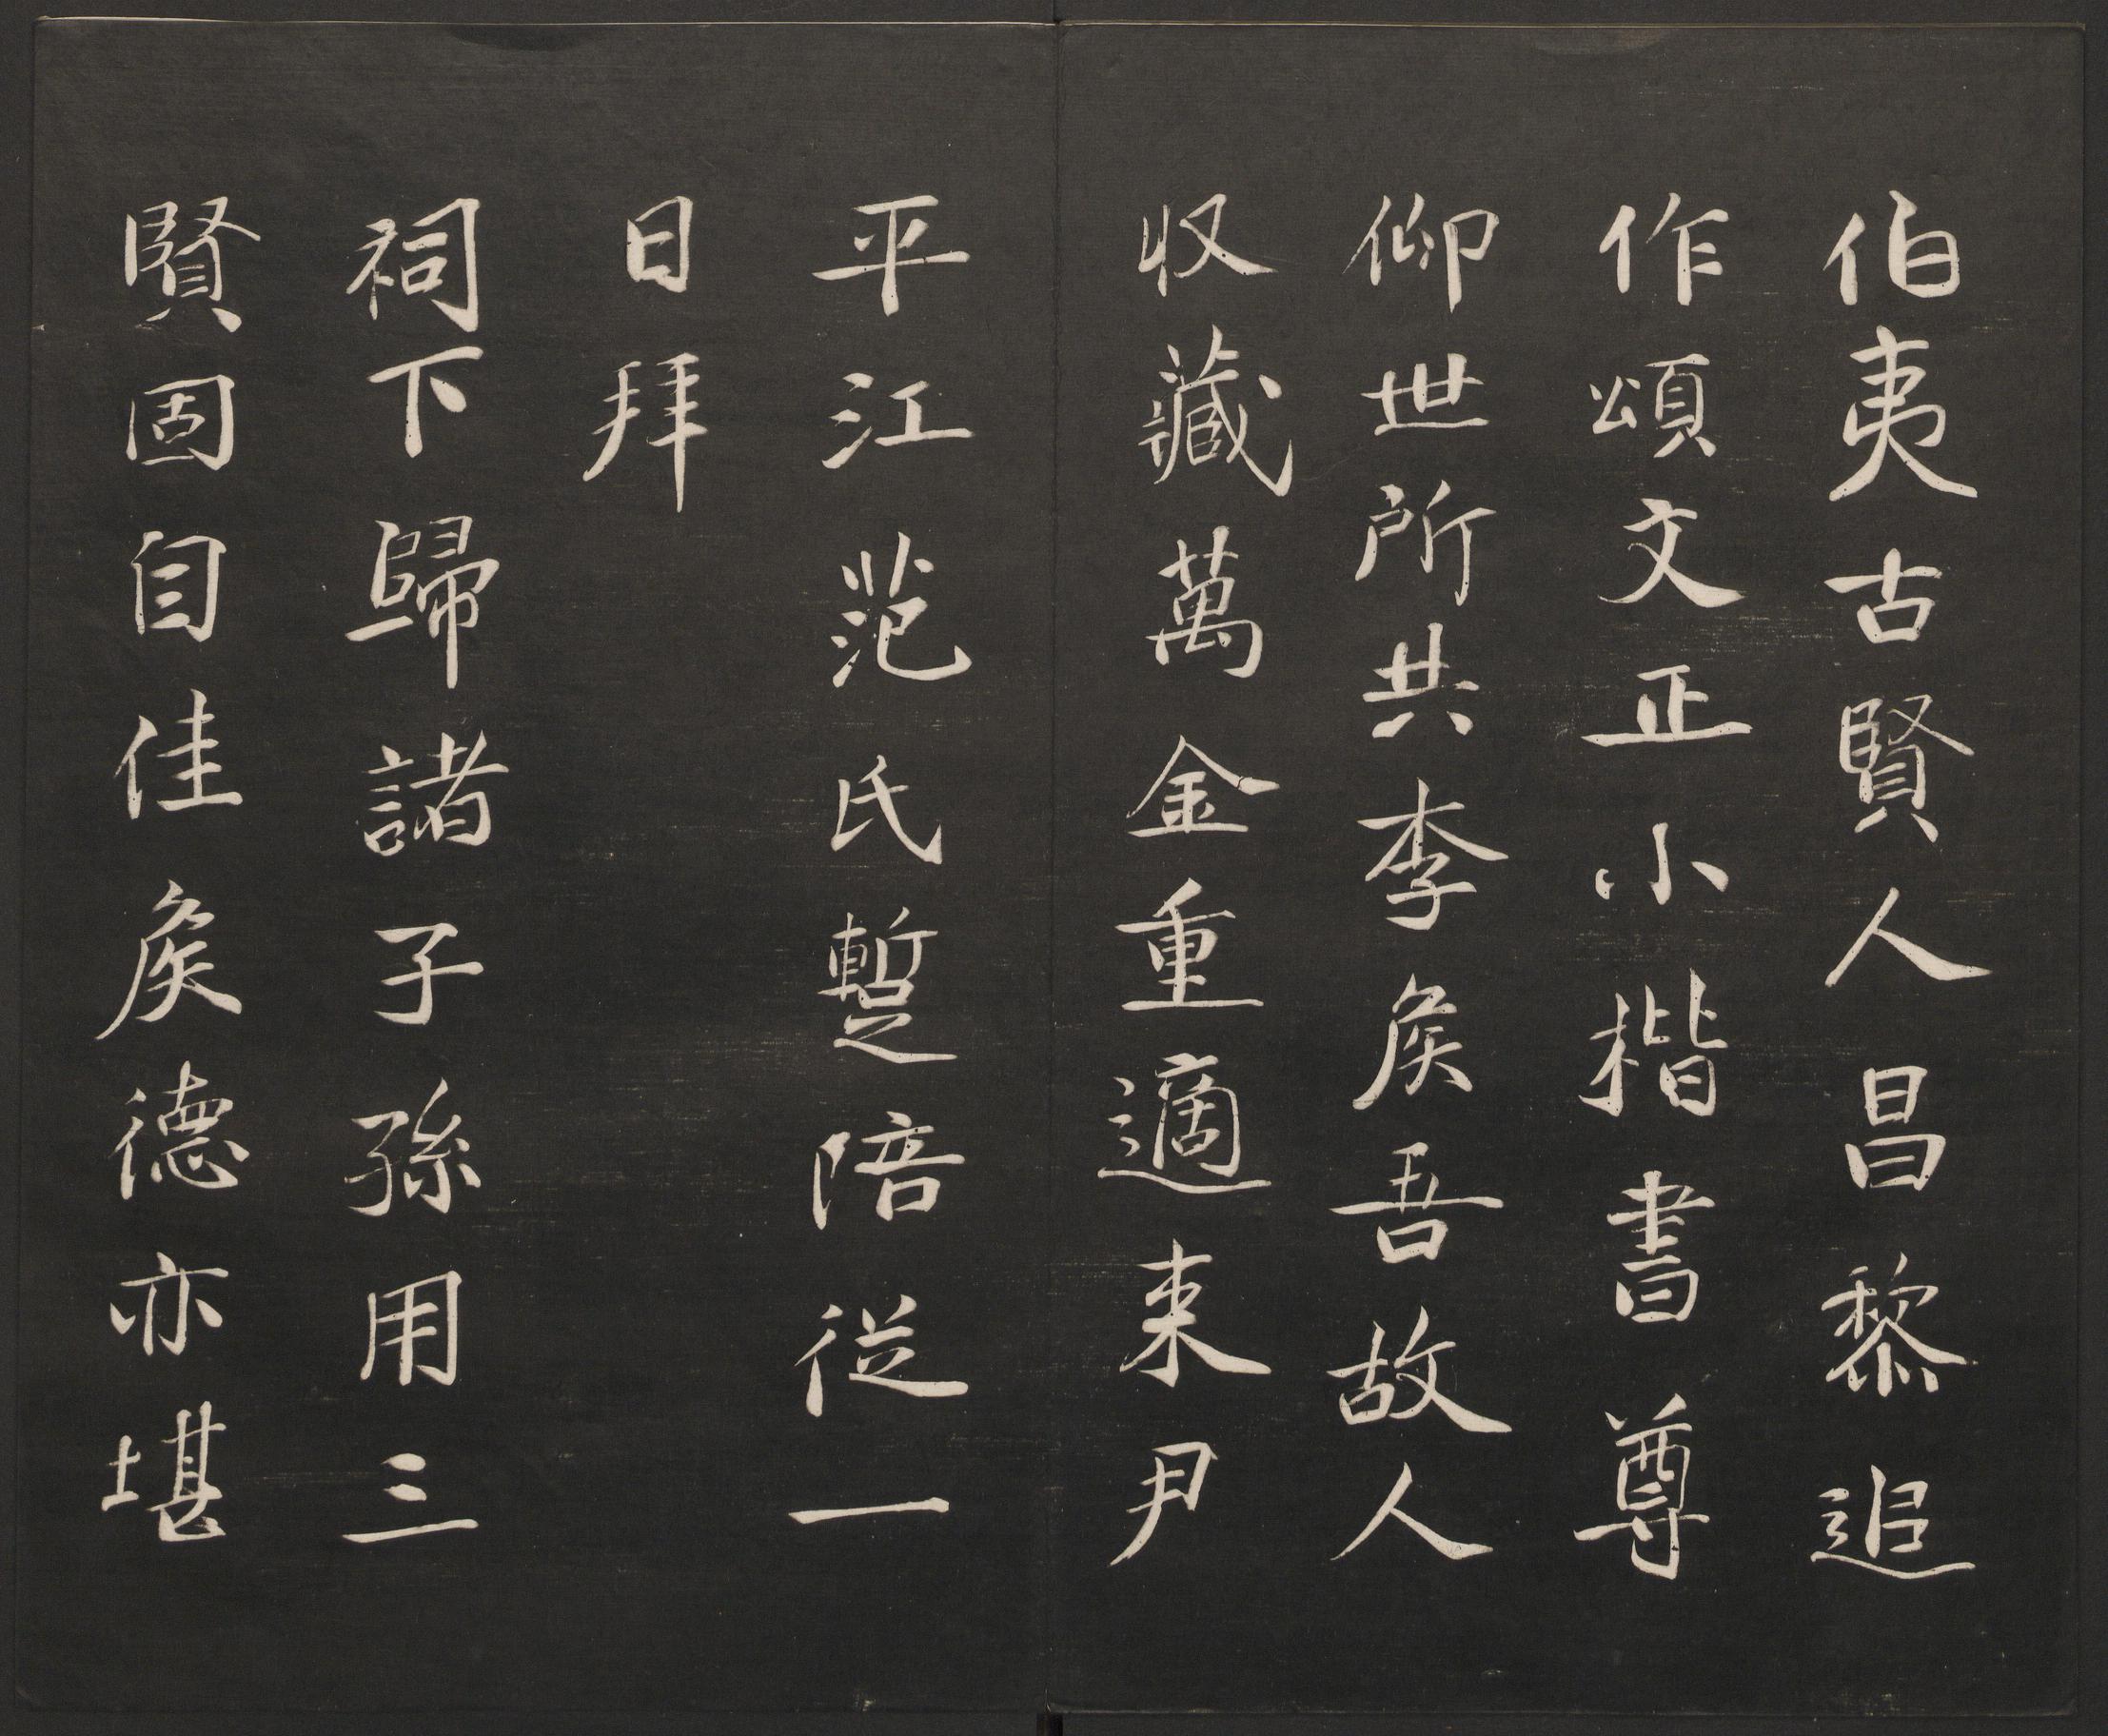 伯夷古賢人昌黎追
作頌文正小楷書尊
仰世所共李矦吾故人
収藏萬金重適来尹
平江范氏暫陪従一
日拜
祠下歸諸子孫用三
賢固自佳矦德亦堪